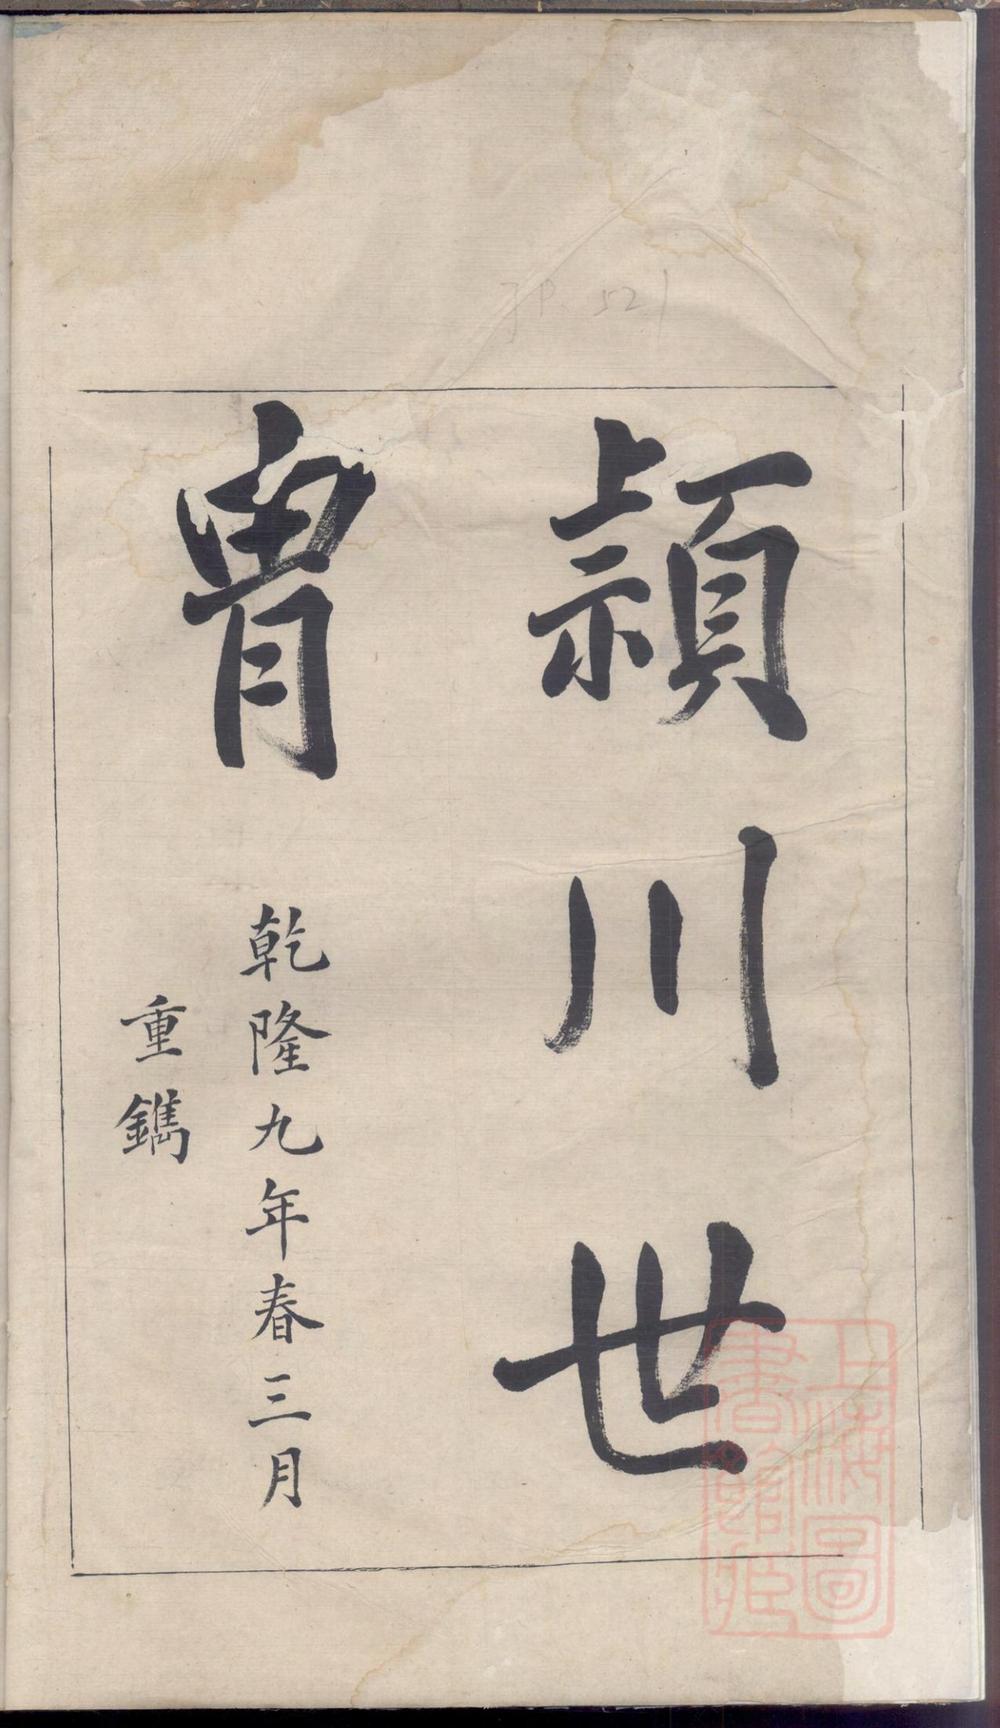 JP. 521
頴川世
胄
乾隆九年春三月
重鐫
上海圖
書館藏